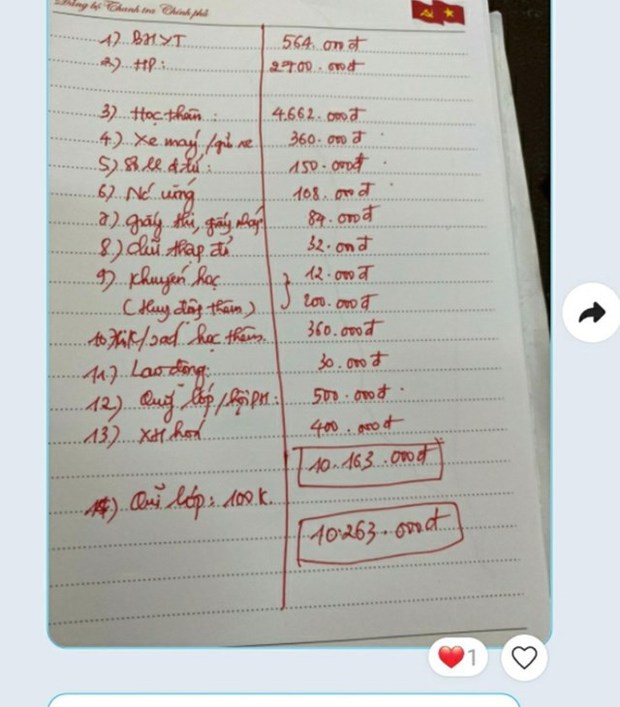 Đảng bộ Thanh tra Chính phủ
1) BHYT 564.000đ
2) HP: 2700.000đ
3) Học thêm: 4.662.000đ
4) Xe máy/gửi xe 360.000đ
5) Sổ LL đ.tử: 150.000đ
6) Nc uống 108.000đ
7) giấy thi, giấy nháp 84.000đ
8) chữ thập đỏ 32.000đ
9) Khuyến học 12.000đ
(Huy động thêm) 200.000đ
10) học thêm. 360.000đ
11) Lao động: 30.000đ
12) Quỹ lớp/hội PH: 500.000đ
13) XH hoá 400.000đ
10.163.000đ
14) Quĩ lớp: 100K.
10.263.000đ
1